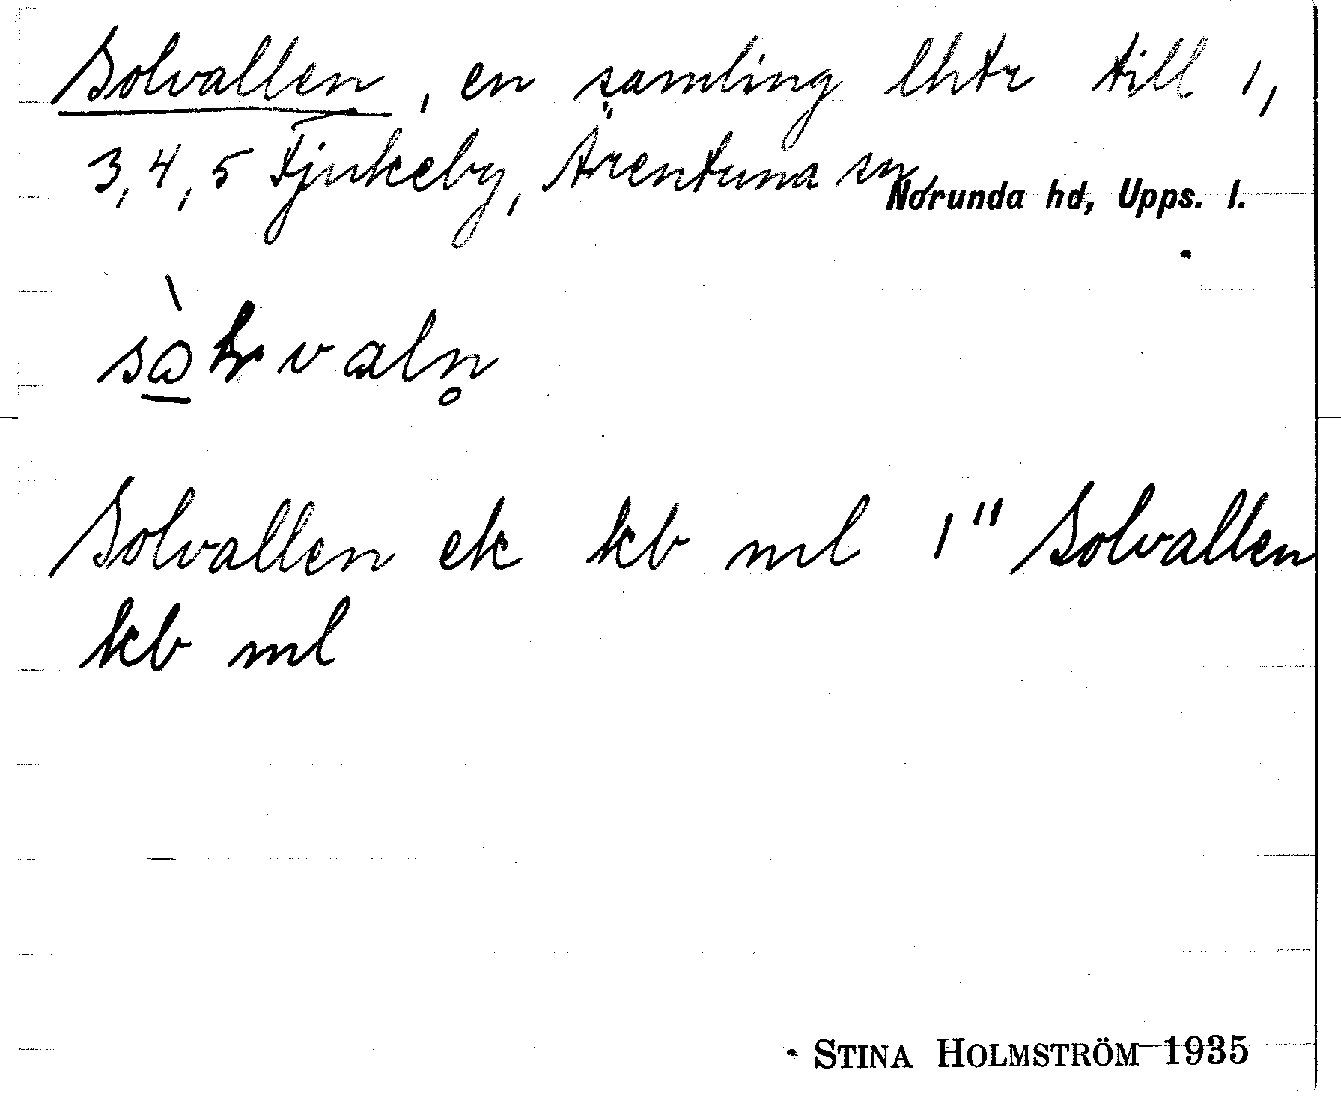 Solvallen, en samling lhtr till 1,
3, 4, 5 Tjukeby, Ärentuna sn,
Norunda hd, Upps. l.
Solvallen ek kb ml 1" Solvallen
kb ml
STINA HOLMSTRÖM 1935